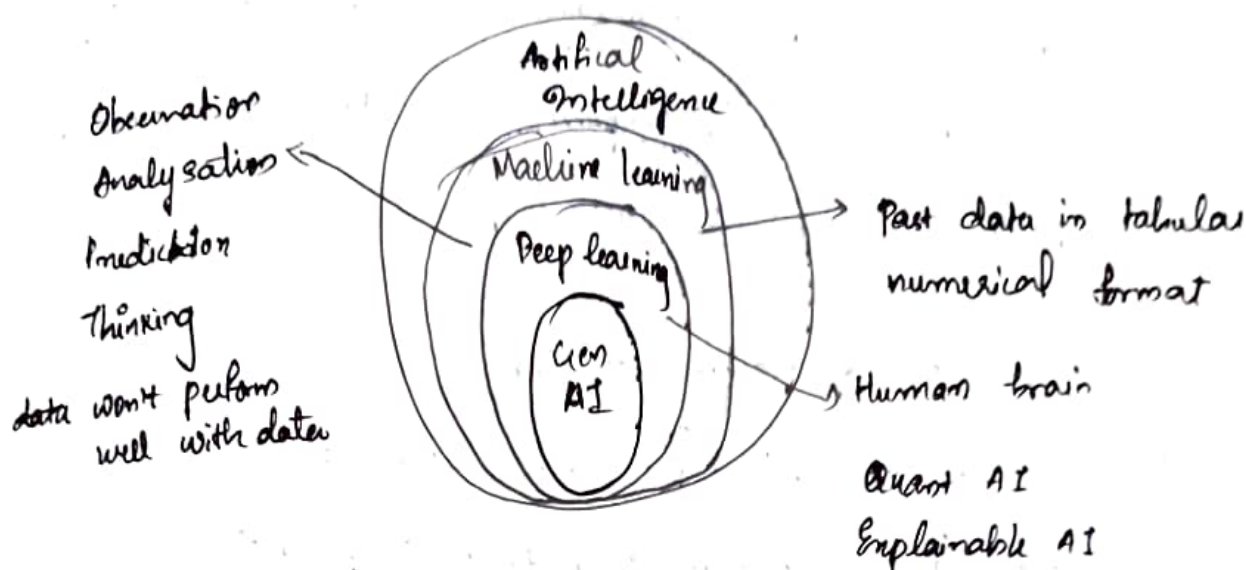 Artifical
Intelligence
Machine learning
Deep learning
Gen
AI
Observation
Analysation
Prediction
Thinking
data won't perform
well with data
Past data in tabular
numerical format
Human brain
Quant AI
Explainable AI